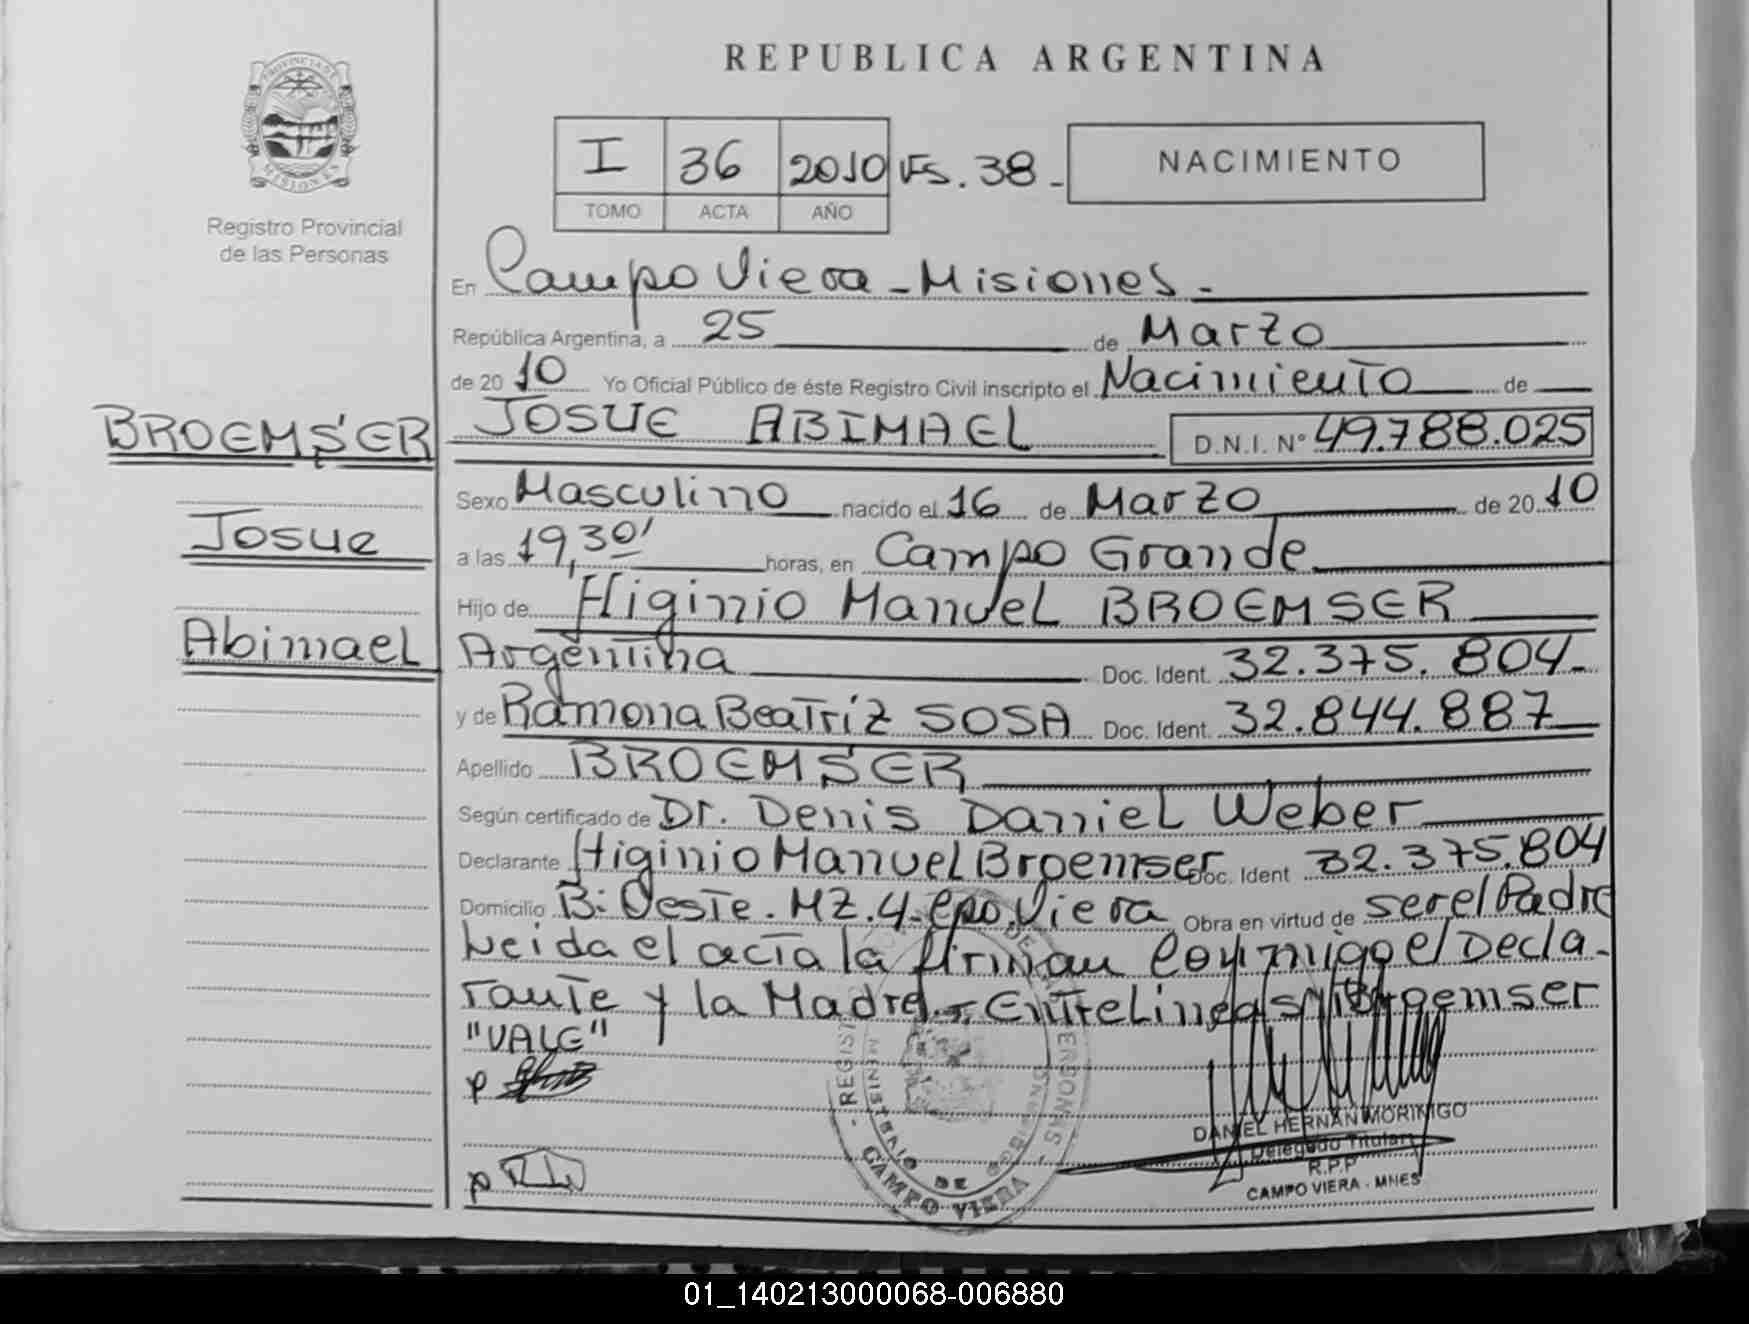 REPUBLICA ARGENTINA
PROVINCIA DE
MISIONES
Registro Provincial
de las Personas
I 36 2010 FS. 38.-
TOMO ACTA AÑO
NACIMIENTO
En Campo Viera - Misiones.-
República Argentina, a 25 de Marzo
de 2010 Yo Oficial Público de éste Registro Civil inscripto el Nacimiento de
BROEMSER
Josue
Abimael
JOSUE ABIMAEL D.N.I. Nº 49.788.025
Sexo Masculino nacido el 16 de Marzo de 2010
a las 19,30' horas, en Campo Grande
Hijo de Higinio Manuel BROEMSER
Argentina Doc. Ident. 32.375.804-
y de Ramona Beatriz SOSA Doc. Ident. 32.844.887
Apellido BROEMSER
Según certificado de Dr. Denis Daniel Weber
Declarante Higinio Manuel Broemser Doc. Ident 32.375.804
Domicilio B: Oeste. MZ. 4. Cpo. Viera Obra en virtud de ser el Padre
Leida el acta la firman Conmigo el Decla-
rante y la Madre.- Entre Lineas Broemser
"VALE"
CAMPO VIERA
DANIEL HERNAN MORINIGO
Delegado Titular
R.P.P
CAMPO VIERA - MNES
01_140213000068-006880